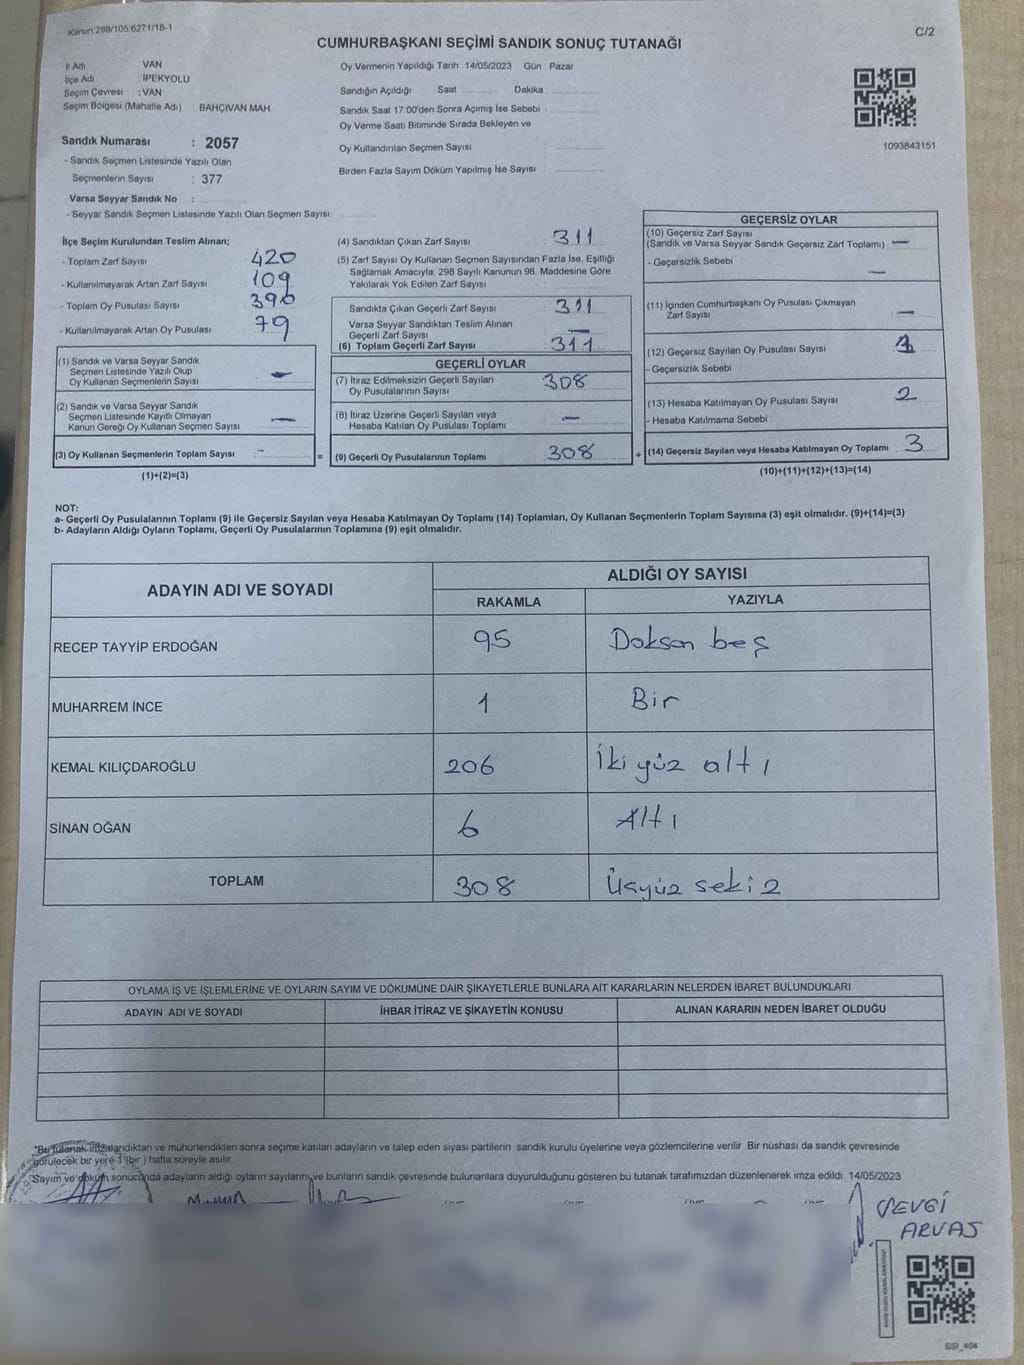 Kanun:298/105;6271/18-1
C/2
CUMHURBAŞKANI SEÇİMİ SANDIK SONUÇ TUTANAĞI
İl Adı VAN
İlçe Adı İPEKYOLU
Seçim Çevresi : VAN
Seçim Bölgesi (Mahalle Adı) BAHÇIVAN MAH.
Sandık Numarası : 2057
- Sandık Seçmen Listesinde Yazılı Olan
Seçmenlerin Sayısı : 377
Varsa Seyyar Sandık No :
- Seyyar Sandık Seçmen Listesinde Yazılı Olan Seçmen Sayısı
Oy Vermenin Yapıldığı Tarih :14/05/2023 Gün : Pazar
Sandığın Açıldığı Saat Dakika
Sandık Saat 17.00'den Sonra Açılmış İse Sebebi
Oy Verme Saati Bitiminde Sırada Bekleyen ve
Oy Kullandırılan Seçmen Sayısı
Birden Fazla Sayım Döküm Yapılmış İse Sayısı
1093843151
İlçe Seçim Kurulundan Teslim Alınan;
- Toplam Zarf Sayısı 420
- Kullanılmayarak Artan Zarf Sayısı 109
- Toplam Oy Pusulası Sayısı 390
- Kullanılmayarak Artan Oy Pusulası 79
(1) Sandık ve Varsa Seyyar Sandık
Seçmen Listesinde Yazılı Olup
Oy Kullanan Seçmenlerin Sayısı —
(2) Sandık ve Varsa Seyyar Sandık
Seçmen Listesinde Kayıtlı Olmayan
Kanun Gereği Oy Kullanan Seçmen Sayısı —
(3) Oy Kullanan Seçmenlerin Toplam Sayısı - =
(1)+(2)=(3)
(4) Sandıktan Çıkan Zarf Sayısı 311
(5) Zarf Sayısı Oy Kullanan Seçmen Sayısından Fazla İse, Eşitliği
Sağlamak Amacıyla; 298 Sayılı Kanunun 98. Maddesine Göre
Yakılarak Yok Edilen Zarf Sayısı
Sandıkta Çıkan Geçerli Zarf Sayısı 311
Varsa Seyyar Sandıktan Teslim Alınan
Geçerli Zarf Sayısı —
(6) Toplam Geçerli Zarf Sayısı 311
GEÇERLİ OYLAR
(7) İtiraz Edilmeksizin Geçerli Sayılan
Oy Pusulalarının Sayısı 308
(8) İtiraz Üzerine Geçerli Sayılan veya
Hesaba Katılan Oy Pusulası Toplamı —
(9) Geçerli Oy Pusulalarının Toplamı 308 +
GEÇERSİZ OYLAR
(10) Geçersiz Zarf Sayısı
(Sandık ve Varsa Seyyar Sandık Geçersiz Zarf Toplamı) —
- Geçersizlik Sebebi —
(11) İçinden Cumhurbaşkanı Oy Pusulası Çıkmayan
Zarf Sayısı —
(12) Geçersiz Sayılan Oy Pusulası Sayısı 1
- Geçersizlik Sebebi
(13) Hesaba Katılmayan Oy Pusulası Sayısı 2
- Hesaba Katılmama Sebebi
(14) Geçersiz Sayılan veya Hesaba Katılmayan Oy Toplamı 3
(10)+(11)+(12)+(13)=(14)
NOT:
a- Geçerli Oy Pusulalarının Toplamı (9) ile Geçersiz Sayılan veya Hesaba Katılmayan Oy Toplamı (14) Toplamları, Oy Kullanan Seçmenlerin Toplam Sayısına (3) eşit olmalıdır. (9)+(14)=(3)
b- Adayların Aldığı Oyların Toplamı, Geçerli Oy Pusulalarının Toplamına (9) eşit olmalıdır.
ADAYIN ADI VE SOYADI
ALDIĞI OY SAYISI
RAKAMLA YAZIYLA
RECEP TAYYİP ERDOĞAN 95 Doksan beş
MUHARREM İNCE 1 Bir
KEMAL KILIÇDAROĞLU 206 İki yüz altı
SİNAN OĞAN 6 Altı
TOPLAM 308 Üçyüz sekiz
OYLAMA İŞ VE İŞLEMLERİNE VE OYLARIN SAYIM VE DÖKÜMÜNE DAİR ŞİKAYETLERLE BUNLARA AİT KARARLARIN NELERDEN İBARET BULUNDUKLARI
ADAYIN ADI VE SOYADI İHBAR İTİRAZ VE ŞİKAYETİN KONUSU ALINAN KARARIN NEDEN İBARET OLDUĞU
*Bu tutanak imzalandıktan ve mühürlendikten sonra seçime katılan adayların ve talep eden siyasi partilerin sandık kurulu üyelerine veya gözlemcilerine verilir. Bir nüshası da sandık çevresinde
görülecek bir yere 1 (bir ) hafta süreyle asılır.
Sayım ve döküm sonucunda adayların aldığı oyların sayılarını ve bunların sandık çevresinde bulunanlara duyurulduğunu gösteren bu tutanak tarafımızdan düzenlenerek imza edildi. 14/05/2023
SEVGİ
ARVAS
SSI_404